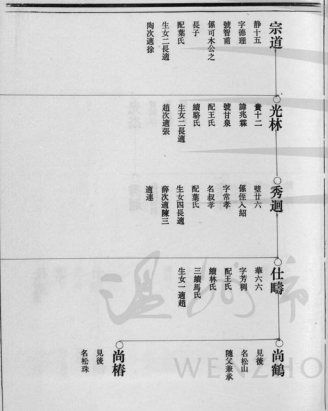 宗道
静十五
字德瑾
號智甫
係可木公之
長子
配葉氏
生女二長適
陶次適徐
光林
賮十二
諱兆霖
號甘泉
配王氏
續駱氏
生女二長適
趙次適張
秀迴
璧廿六
係侄入紹
字常孝
名叔孝
配葉氏
生女四長適
薛次適陳三
適連
仕疇
華六六
字芳稠
配王氏
續林氏
三續馬氏
生女一適趙
尚鶴
見後
名松山
隨父兼承
尚椿
見後
名松珠
溫州市
WENZHO